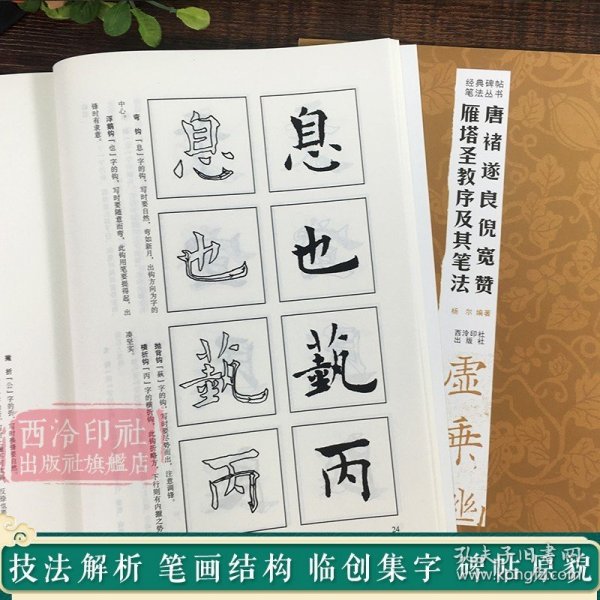 经典碑帖
笔法丛书
唐褚遂良倪宽赞
雁塔圣教序及其笔法
杨尔 编著
西泠印社
出版社
虚
乘
幽
息
息
也
也
藝
藝
丙
丙
弯钩 「息」字的钩，写时要自然，弯如新月，出钩方向为字的
中心。
浮鹅钩 「也」字的钩，写时要随意而弯，此钩用笔要提得起，出
锋时有隶意。
抛背钩 「藝」字的钩，写时要尽势而出，注意调锋。
横折钩 「丙」字的横折钩，此钩折略方，下行则有内擫之势
凑坚实。
24
西泠印社
出版社旗舰店
技法解析 笔画结构 临创集字 碑帖原貌
孔夫子旧书网
www.kongfz.com